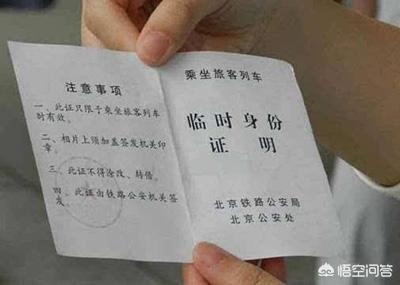 注意事项
一、此证只限于乘坐旅客列车
时有效。
二、相片上须加盖签发机关印
章。
三、此证不得涂改、转借。
四、此证由铁路公安机关签
发。
乘坐旅客列车
临时身份
证明
北京铁路公安局
北京公安处
悟空问答